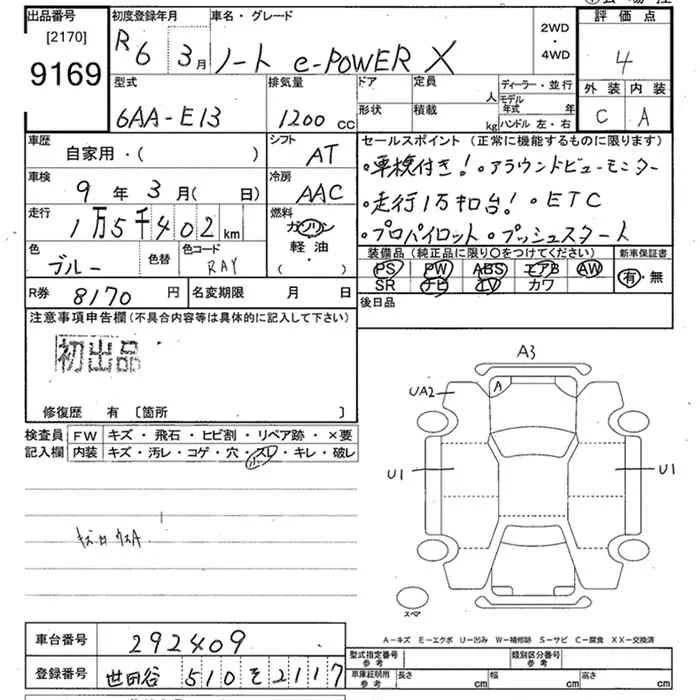 出品番号 初度登録年月 車名・グレード 2WD・4WD 評価点
[2170]
9169
R6 3月 ノート e-POWER X 4
型式 排気量 ドア 定員 人 ディーラー・並行 外装 内装
6AA-E13 1200 cc 形状 積載 kg モデル年式 年 C A
ハンドル 左・右
車歴 自家用・( ) シフト AT セールスポイント (正常に機能するものに限ります)
車検 9年3月( 日) 冷房 AAC ・車検付き!・アラウンドビューモニター
走行 1万5千402km 燃料 ガソリン 軽油 ( ) ・走行1万キロ台!・ETC
・プロパイロット・プッシュスタート
色 ブルー 色替 色コード RAY 装備品 (純正品に限り○をつけてください) 新車保証書
PS PW ABS エアB AW 有・無
SR ナビ TV カワ
R券 8170円 名変期限 月 日 後日品
注意事項申告欄 (不具合内容等は具体的に記入して下さい)
初出品
修復歴 有 〔箇所 〕
検査員記入欄 FW キズ・飛石・ヒビ割・リペア跡・×要
内装 キズ・汚レ・コゲ・穴・スレ・キレ・破レ
小
A3
UA2 A
U1 U1
スペア
A-キズ E-エクボ U-凹み W-補修跡 S-サビ C-腐食 XX-交換済
車台番号 292409
登録番号 世田谷 510 を 2117
型式指定番号 参考 類別区分番号 参考
車庫証明用 参考 長さ cm 幅 cm 高さ cm